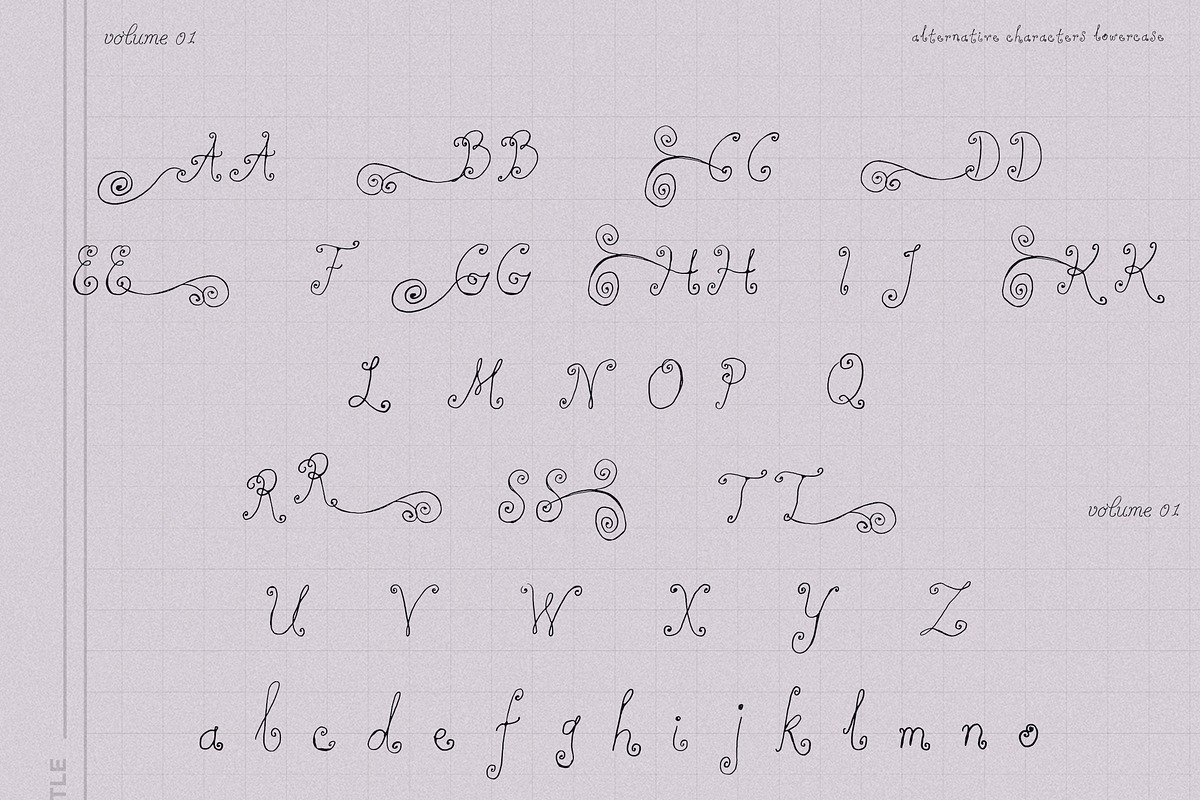 volume 01
alternative characters lowercase
AA BB CC DD
EE F GG HH I J KK
L M N O P Q
RR SS TT
volume 01
U V W X Y Z
a b c d e f g h i j k l m n o
TLE